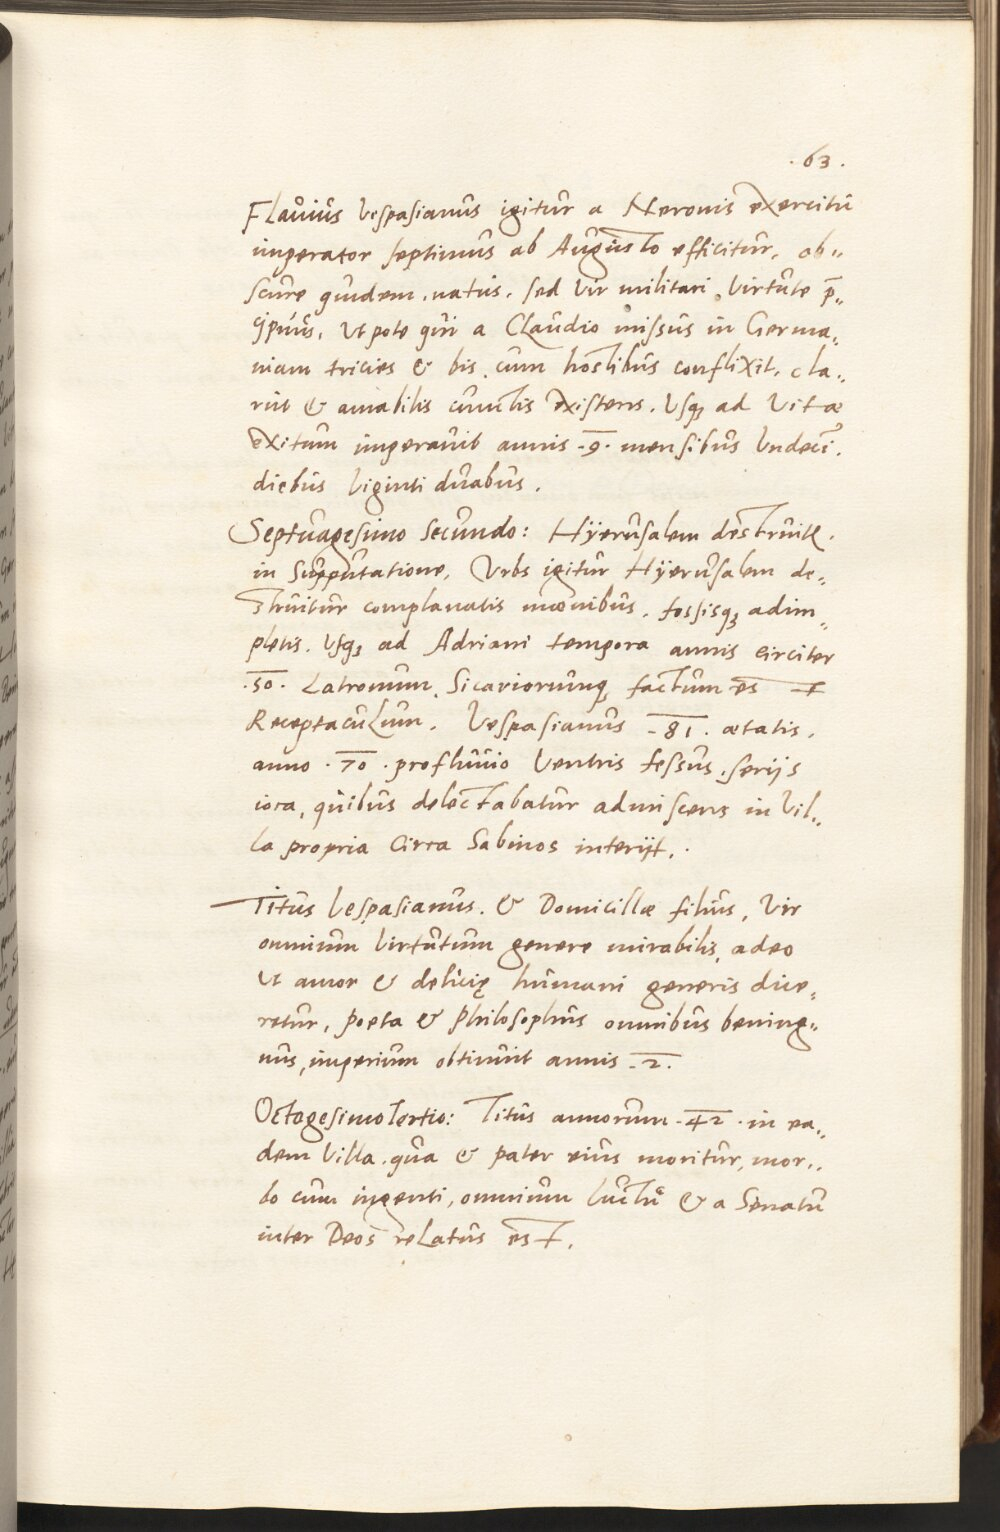 . 63 .
Flavius Vespasianus igitur a Neronis exercitu
imperator septimus ab Augusto efficitur, ob„
scure quidem, natus, sed vir militari virtute p̄„
cipuus, Ut pote qui a Claudio missus in Germa„
niam tricies & bis cum hostibus conflixit, cla„
rus & amabilis cunctis existens. Usq3 ad Vitæ
exitum imperavit annis .9. mensibus Undeci.
diebus Viginti duabus.
Septuagesimo Secundo: Hÿerusalem destruit~.
in supputatione, Urbs igitur Hÿerusalem de„
struitur complanatis mœnibus, fossisq3 adim„
pletis. Usq3 ad Adriani tempora annis circiter
.50. Latronum, Sicariorumq3 factum est
Receptaculum. Vespasianus .81. ætatis,
anno .70. profluvio Ventris fessus, serijs
ioca, quibus delectabatur admiscens in Vil„
la propria Circa Sabinos interijt.
Titus Vespasianus. & Domicillæ filius, Vir
omnium virtutum genere mirabilis, adeo
Ut amor & delicię humani generis dice„
retur, Poeta & Philosophus omnibus bening„
nus, imperium obtinuit annis .2.
Octogesimo Tertio: Titus annorum .42. in ea„
dem Villa qua & pater eius moritur, mor„
bo cum ingenti, omnium luctu & a Senatu
inter Deos relatus est.